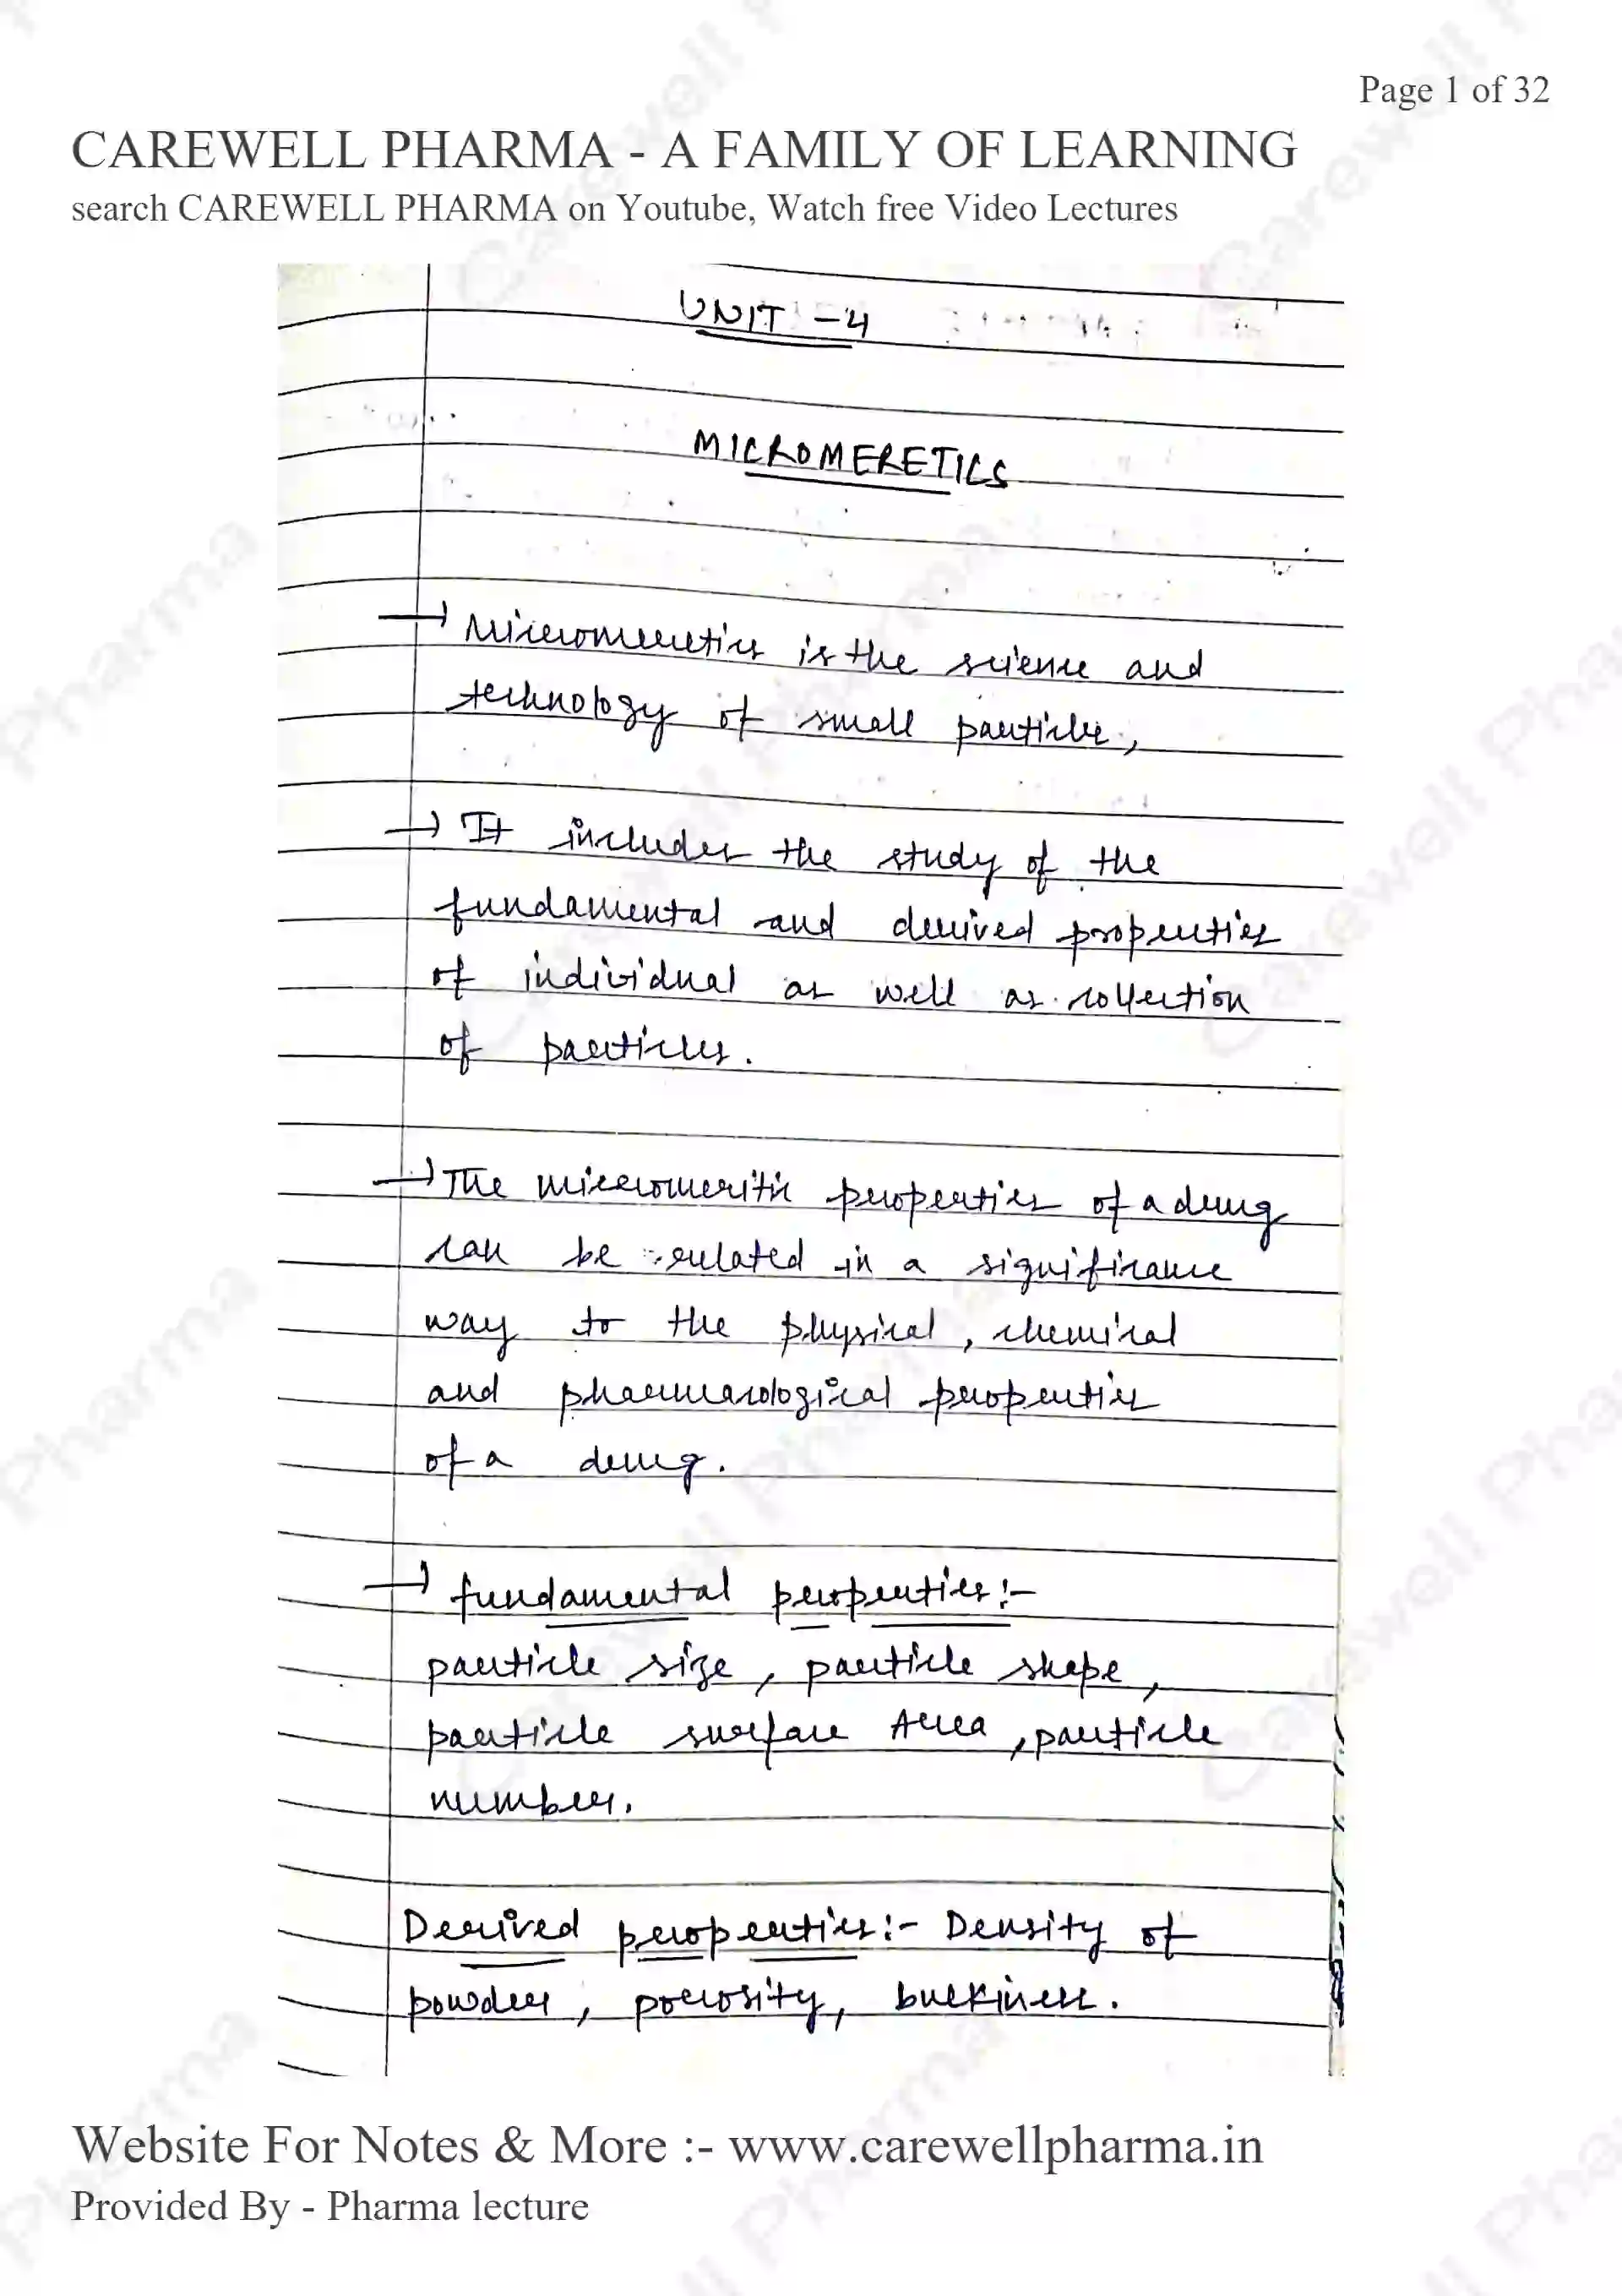 Page 1 of 32
CAREWELL PHARMA - A FAMILY OF LEARNING
search CAREWELL PHARMA on Youtube, Watch free Video Lectures
UNIT - 4
MICROMERETICS
→ Micromeretics is the science and
technology of small particles,
→ It includes the study of the
fundamental and derived properties
of individual as well as collection
of particles.
→ The micromeritic properties of a drug
can be related in a significance
way to the physical, chemical
and pharmacological properties
of a drug.
→ fundamental properties:-
particle size, particle shape,
particle surface Area, particle
number.
Derived properties:- Density of
powder, porosity, bulkiness.
Website For Notes & More :- www.carewellpharma.in
Provided By - Pharma lecture
Carewell Pharma